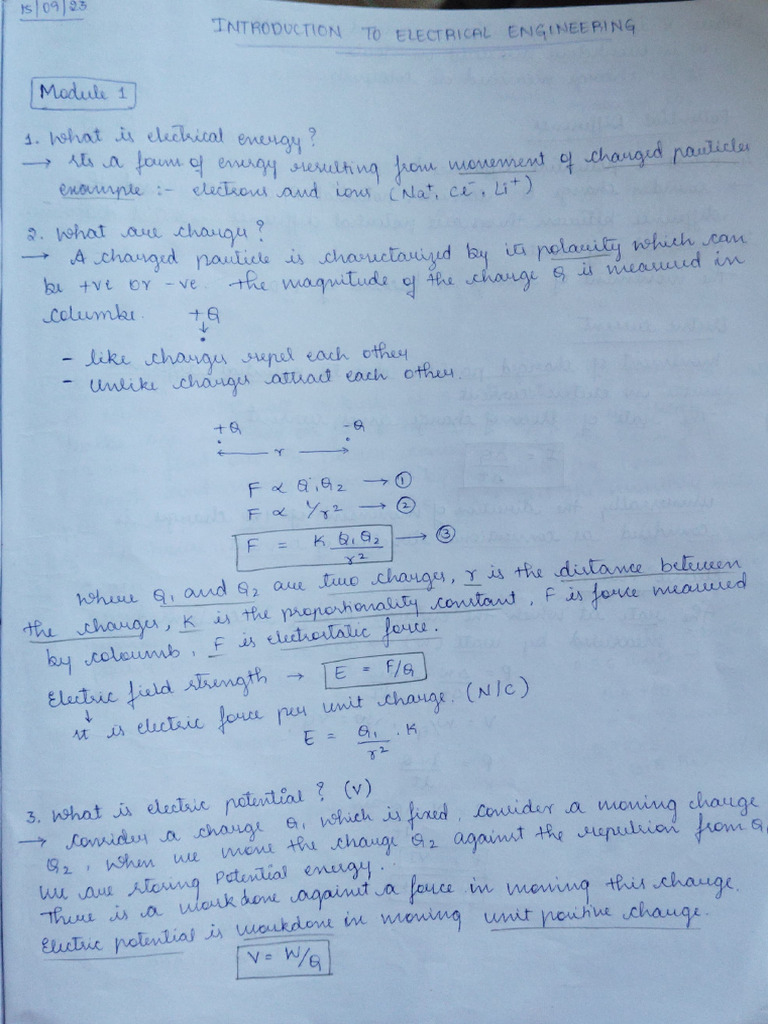 15/09/23
INTRODUCTION TO ELECTRICAL ENGINEERING
Module 1
1. What is electrical energy?
→ Its a form of energy resulting from movement of charged particles
example :- electrons and ions (Na⁺, Cl⁻, Li⁺)
2. What are charge?
→ A charged particle is charectarized by its polarity which can
be +ve or -ve. The magnitude of the charge Q is measured in
columbe. +Q
- like charges repel each other
- unlike charges attract each other.
+Q -Q
← r →
F ∝ Q₁Q₂ → ①
F ∝ 1/r² → ②
F = K Q₁Q₂/r² → ③
Where Q₁ and Q₂ are two charges, r is the distance between
the charges, K is the proportionality constant, F is force measured
by coloumb, F is electrostatic force.
Electric field strength → E = F/Q
↓
It is electric force per unit charge. (N/C)
E = Q₁/r² . K
3. What is electric potential? (V)
→ Consider a charge Q₁ which is fixed, consider a moving charge
Q₂, when we move the charge Q₂ against the repulsion from Q₁
We are storing Potential energy.
There is a workdone against a force in moving this charge.
Electric potential is workdone in moving unit positive charge.
V = W/Q